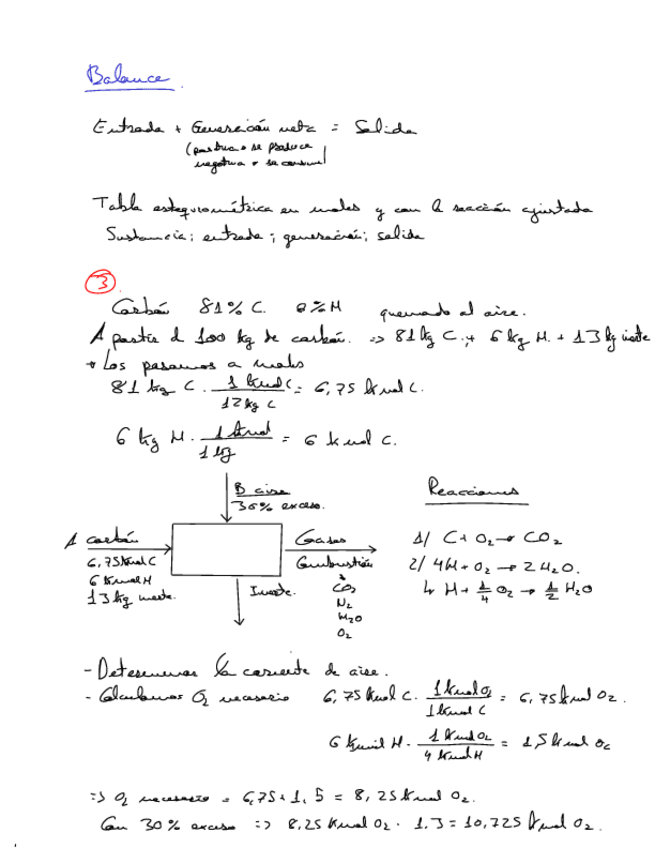 Balance
Entrada + Generación neta = Salida
(positiva • se produce
negativa • se consume)
Tabla estequiométrica en moles y con la reacción ajustada
Sustancia; entrada; generación; salida
3
Carbón 81% C. 6%H quemado al aire.
A partir d 100 kg de carbón. => 81 kg C + 6 kg H + 13 kg inerte
• Los pasamos a moles
81 kg C · 1 kmol C / 12 kg C = 6,75 kmol C.
6 kg H · 1 kmol / 1 kg = 6 kmol C.
B aire
30% exceso.
A carbón
6,75 kmol C
6 kmol H
13 kg inerte.
Inerte.
Gases
Combustión
CO2
N2
H2O
O2
Reacciones
1/ C + O2 → CO2
2/ 4H + O2 → 2H2O.
↳ H + 1/4 O2 → 1/2 H2O
- Determinar la corriente de aire.
- Calculamos O2 necesario 6,75 kmol C · 1 kmol O2 / 1 kmol C = 6,75 kmol O2.
6 kmol H · 1 kmol O2 / 4 kmol H = 1,5 kmol O2
=> O2 necesario = 6,75 + 1,5 = 8,25 kmol O2.
Con 30% exceso => 8,25 kmol O2 · 1,3 = 10,725 kmol O2.